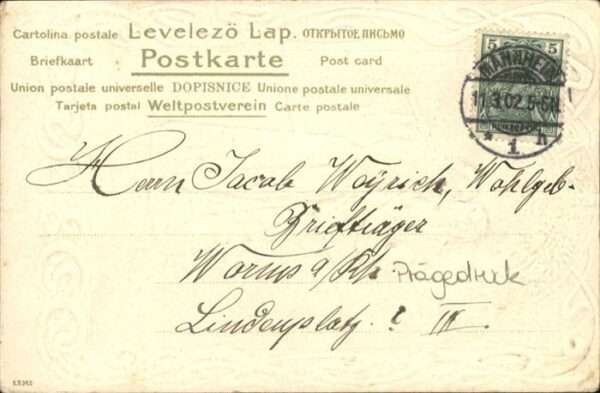 Cartolina postale Levelező Lap. ОТКРЫТОЕ ПИСЬМО
Briefkaart Postkarte Post card
Union postale universelle DOPISNICE Unione postale universale
Tarjeta postal Weltpostverein Carte postale
5 5
MANNHEIM
11.3.02.5-6N.
* 1. h
Herrn Jacob Weyrich, Wohlgeb-
Briefträger
Worms a/Rh. Prägedruck
Lindenplatz. 2 III